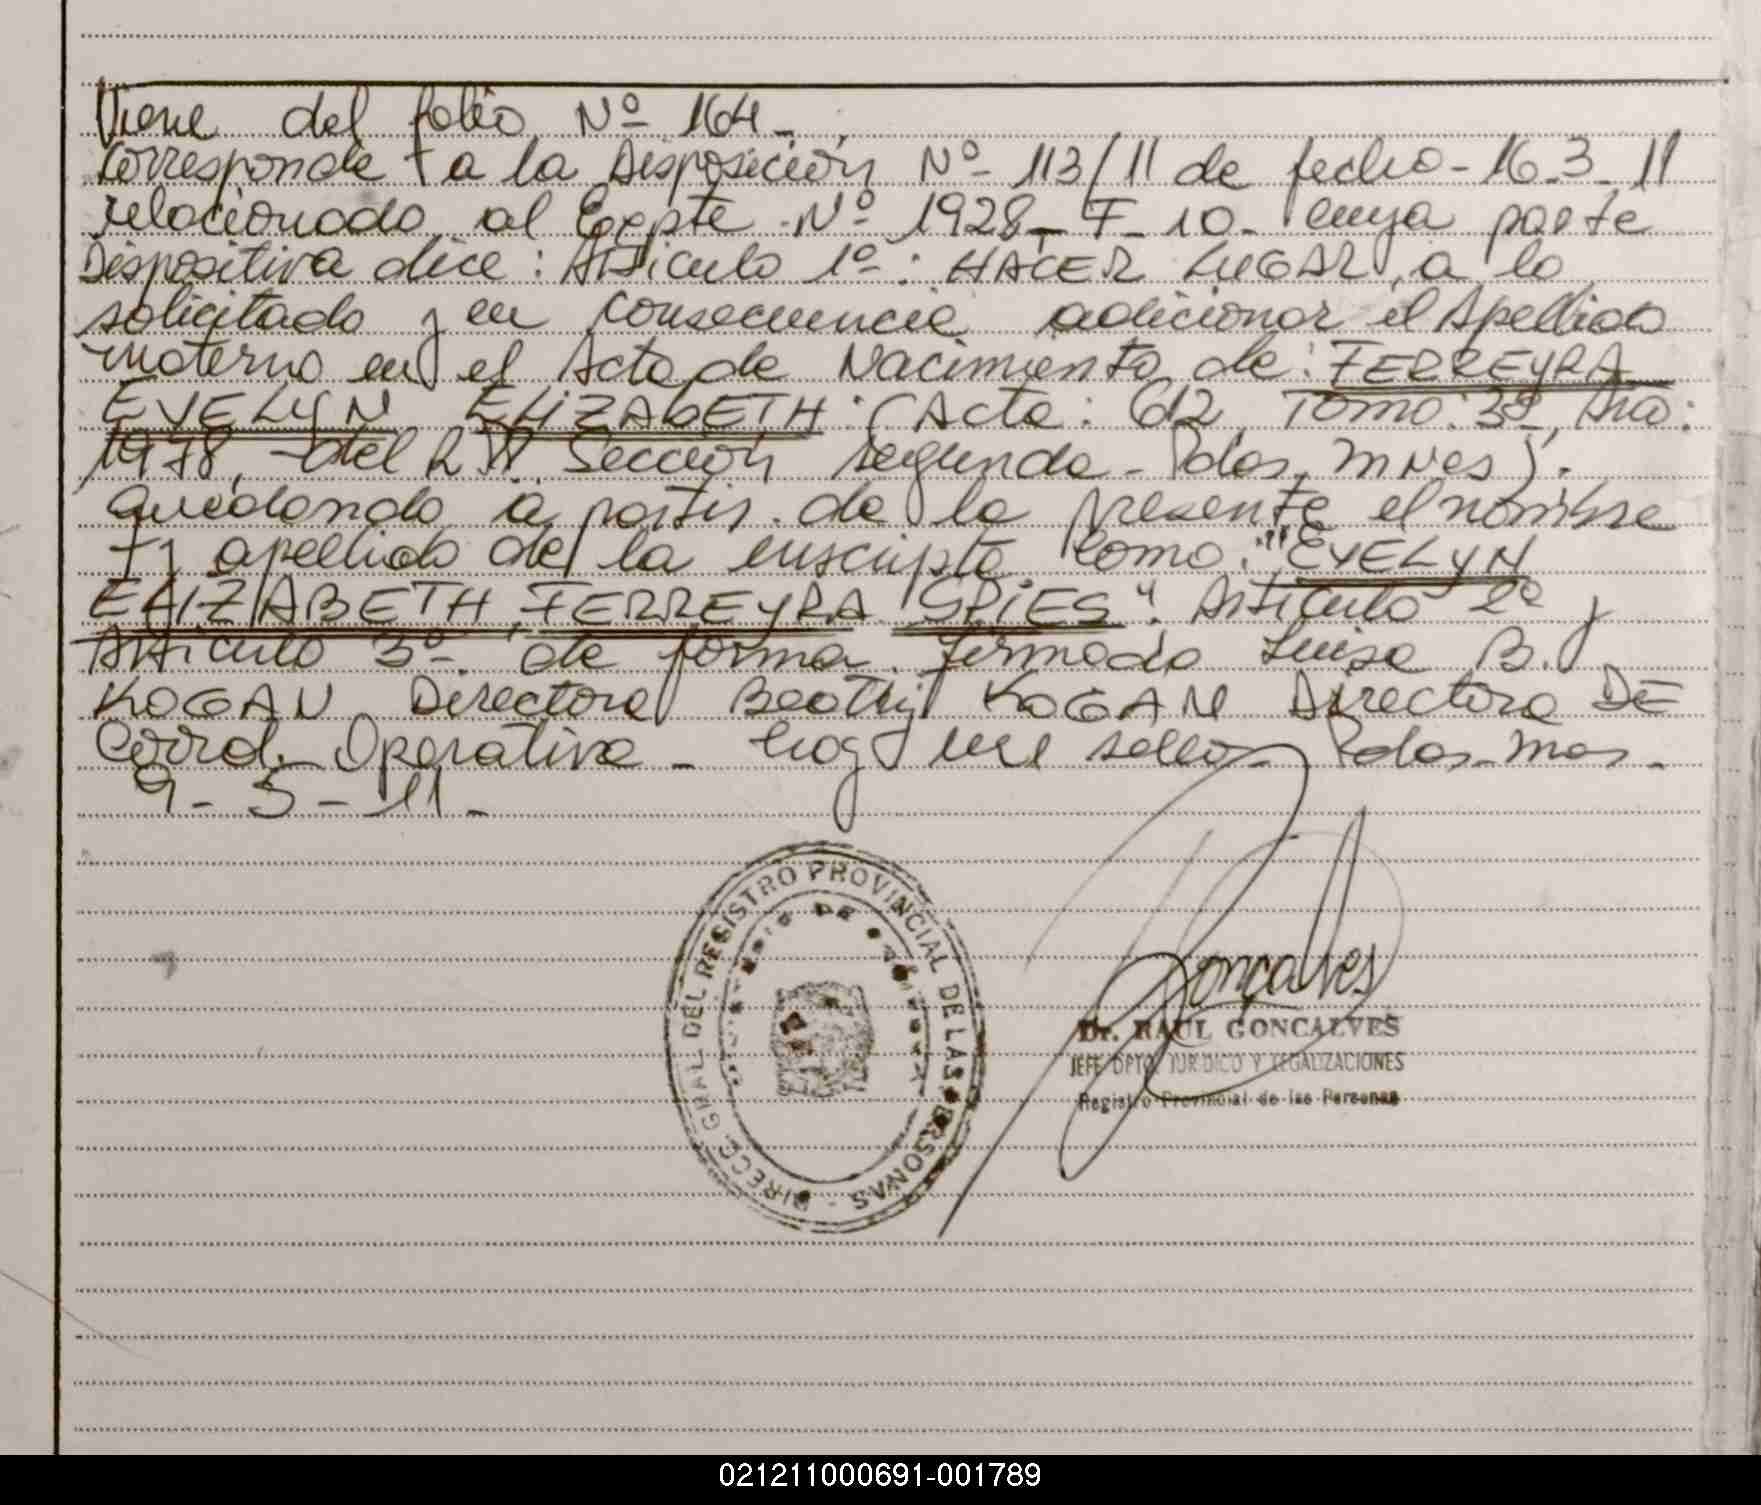 Viene del folio Nº 164-
Corresponde a la Disposición Nº 113/11 de fecha - 16-3-11
relacionado al Expte Nº 1928-F-10- cuya parte
Dispositiva dice: Artículo 1º: HACER LUGAR, a lo
solicitado y en consecuencia adicionar el Apellido
materno en el Acta de Nacimiento de: FERREYRA
EVELYN ELIZABETH: (Acta: 612, Tomo: 3º, Año:
1978, - del Sección segunda - Pdas, Mnes).
quedando a partir de la presente el nombre
y apellido de la inscripta como: "EVELYN
ELIZABETH, FERREYRA SPIES". Artículo 2º y
Artículo 3º de forma. firmado Luisa B.
KOGAN Directora Beatriz KOGAN Directora DE
Coord. Operativa - hay un sello - Pdas-Mnes-
9-5-11-
DIRECC. GRAL DEL REGISTRO PROVINCIAL DE LAS PERSONAS -
Goncalves
Dr. RAUL GONCALVES
JEFE DPTO. JURIDICO Y LEGALIZACIONES
Registro Provincial de las Personas
021211000691-001789